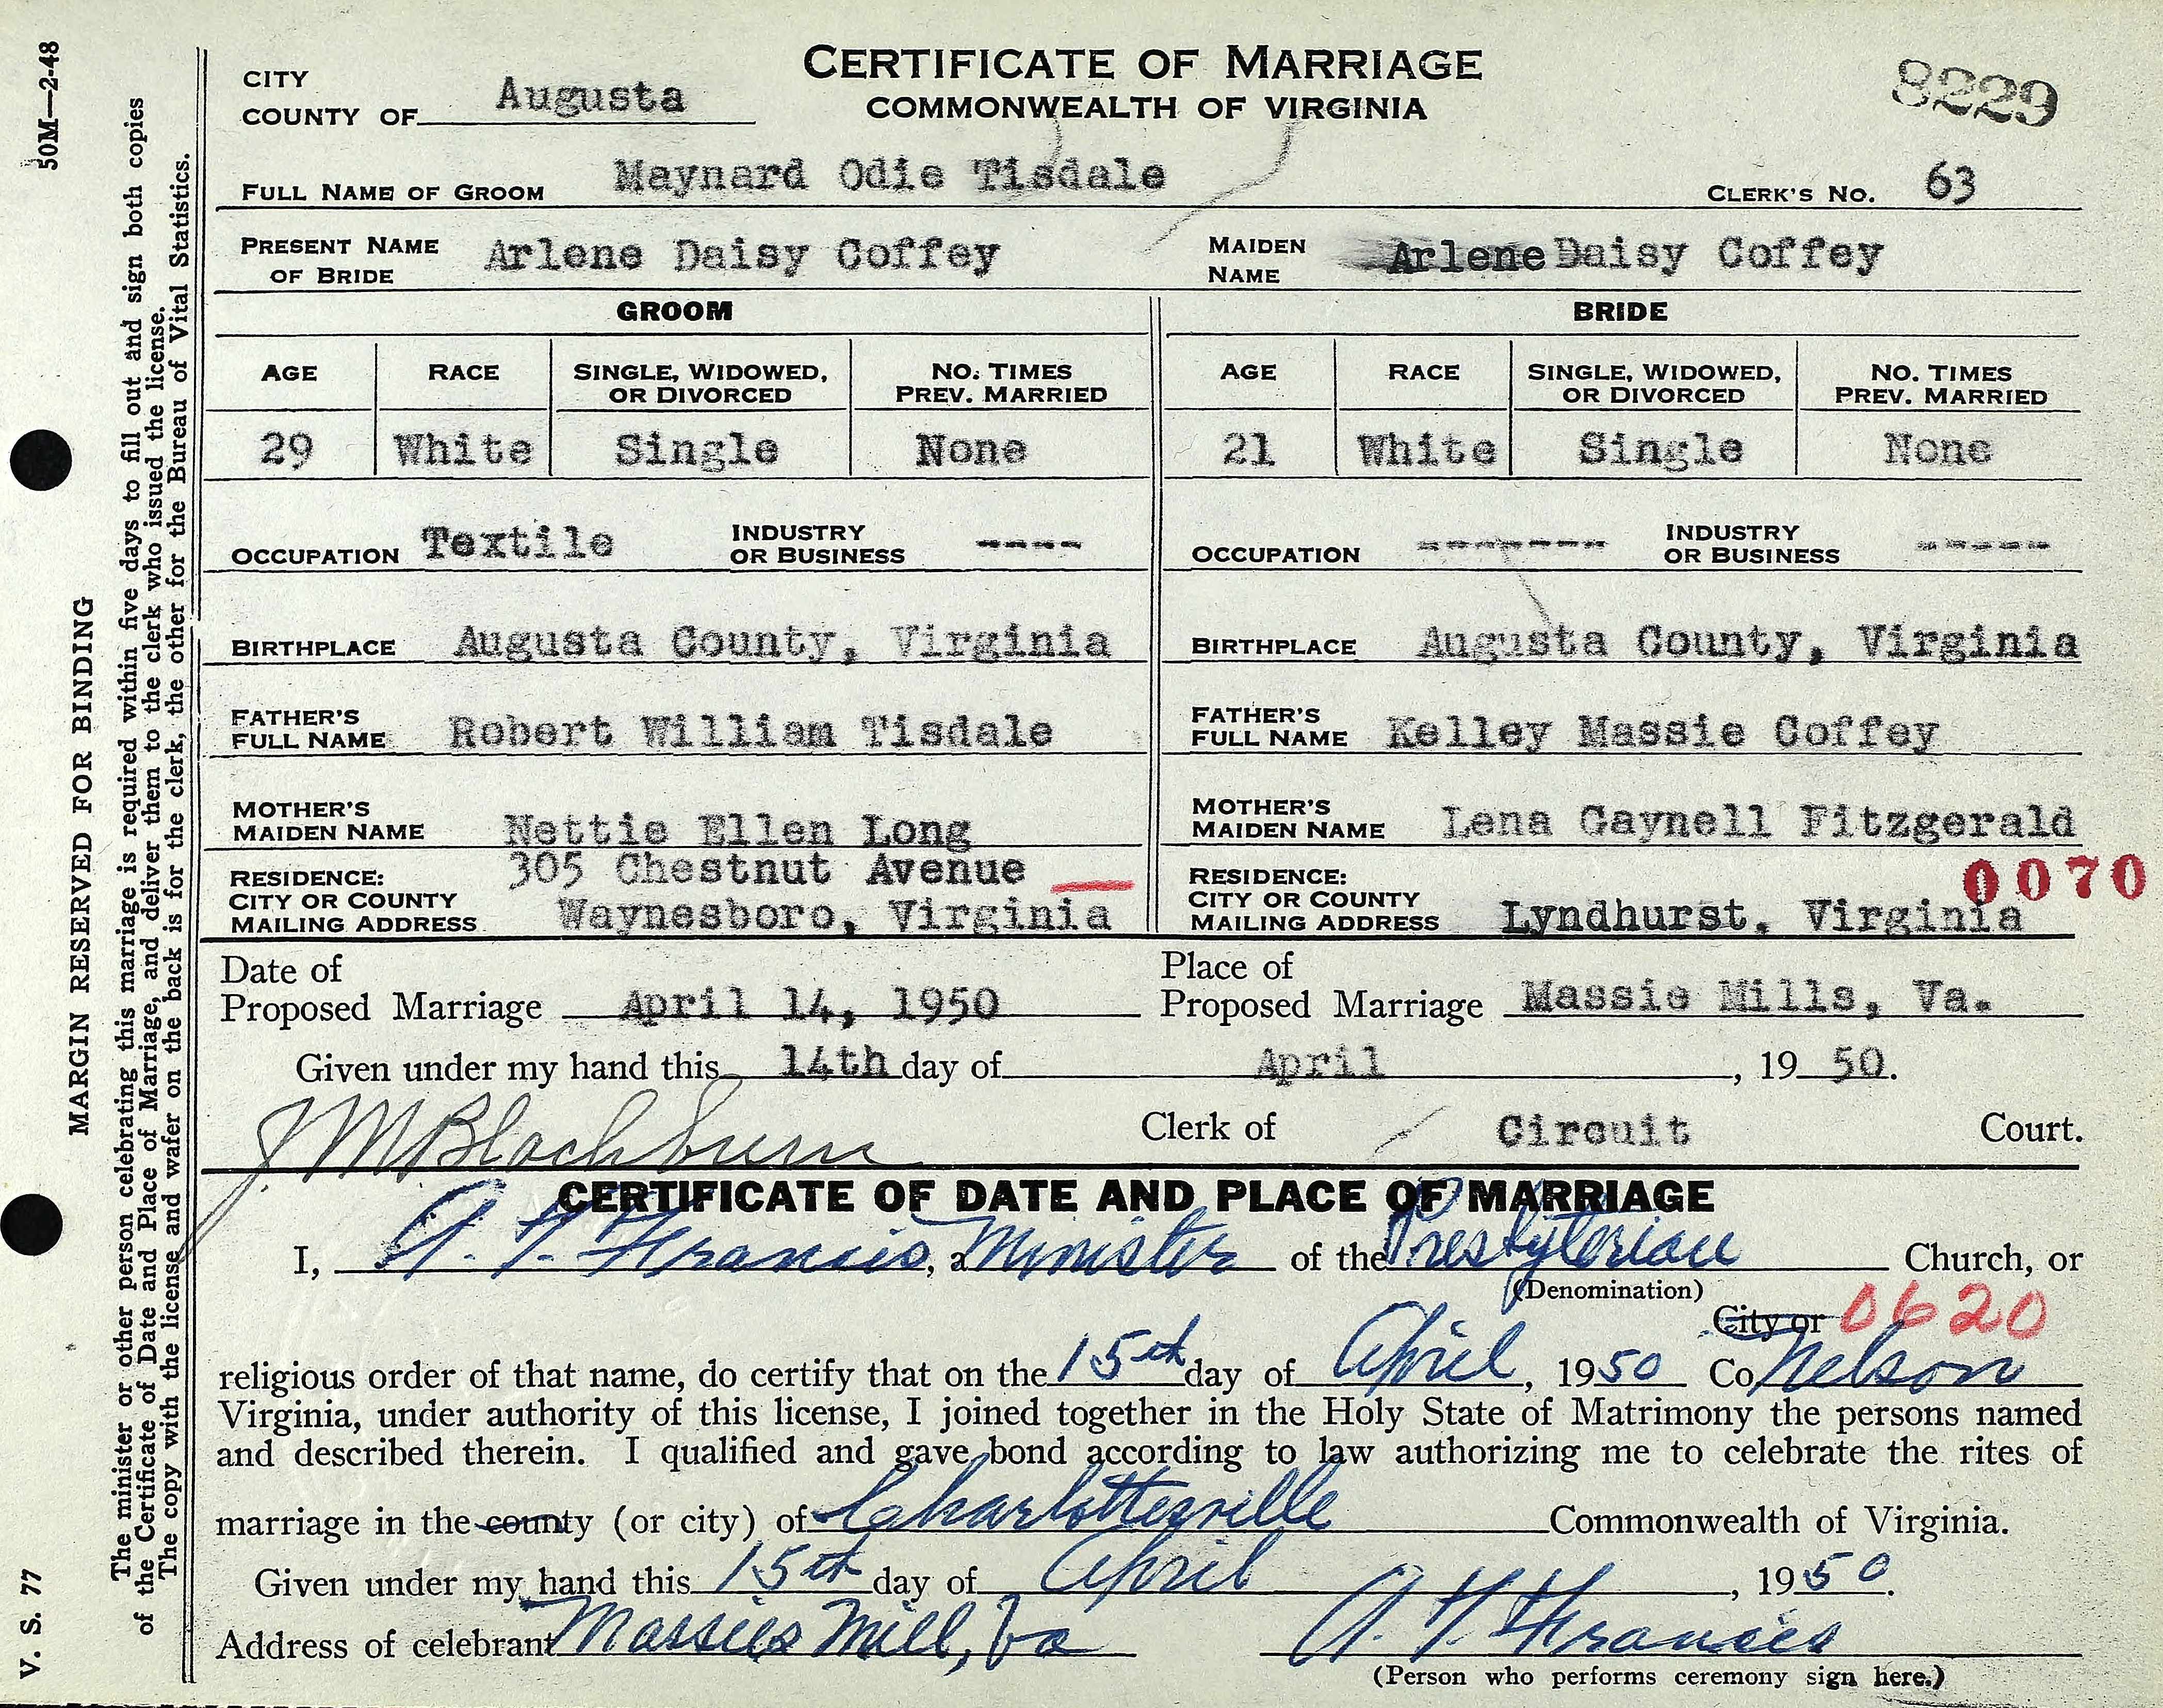 50M—2-48
MARGIN RESERVED FOR BINDING
V. S. 77
The minister or other person celebrating this marriage is required within five days to fill out and sign both copies
of the Certificate of Date and Place of Marriage, and deliver them to the clerk who issued the license.
The copy with the license and wafer on the back is for the clerk, the other for the Bureau of Vital Statistics.
CERTIFICATE OF MARRIAGE
COMMONWEALTH OF VIRGINIA
8229
CITY
COUNTY OF Augusta
FULL NAME OF GROOM Maynard Odie Tisdale CLERK'S NO. 63
PRESENT NAME OF BRIDE Arlene Daisy Coffey MAIDEN NAME Arlene Daisy Coffey
GROOM BRIDE
AGE RACE SINGLE, WIDOWED, OR DIVORCED NO. TIMES PREV. MARRIED AGE RACE SINGLE, WIDOWED, OR DIVORCED NO. TIMES PREV. MARRIED
29 White Single None 21 White Single None
OCCUPATION Textile INDUSTRY OR BUSINESS ---- OCCUPATION ------- INDUSTRY OR BUSINESS -----
BIRTHPLACE Augusta County, Virginia BIRTHPLACE Augusta County, Virginia
FATHER'S FULL NAME Robert William Tisdale FATHER'S FULL NAME Kelley Massie Coffey
MOTHER'S MAIDEN NAME Nettie Ellen Long MOTHER'S MAIDEN NAME Lena Gaynell Fitzgerald
RESIDENCE: CITY OR COUNTY MAILING ADDRESS 305 Chestnut Avenue Waynesboro, Virginia RESIDENCE: CITY OR COUNTY MAILING ADDRESS Lyndhurst, Virginia 0070
Date of Proposed Marriage April 14, 1950 Place of Proposed Marriage Massie Mills, Va.
Given under my hand this 14th day of April, 19 50.
J M Blackburn Clerk of Circuit Court.
CERTIFICATE OF DATE AND PLACE OF MARRIAGE
I, A. Y. Francis, a Minister of the Presbyterian Church, or
(Denomination)
City or 0620
religious order of that name, do certify that on the 15th day of April, 1950 Co Nelson
Virginia, under authority of this license, I joined together in the Holy State of Matrimony the persons named
and described therein. I qualified and gave bond according to law authorizing me to celebrate the rites of
marriage in the county (or city) of Charlottesville Commonwealth of Virginia.
Given under my hand this 15th day of April, 1950.
Address of celebrant Massies Mill, Va A. Y. Francis
(Person who performs ceremony sign here.)